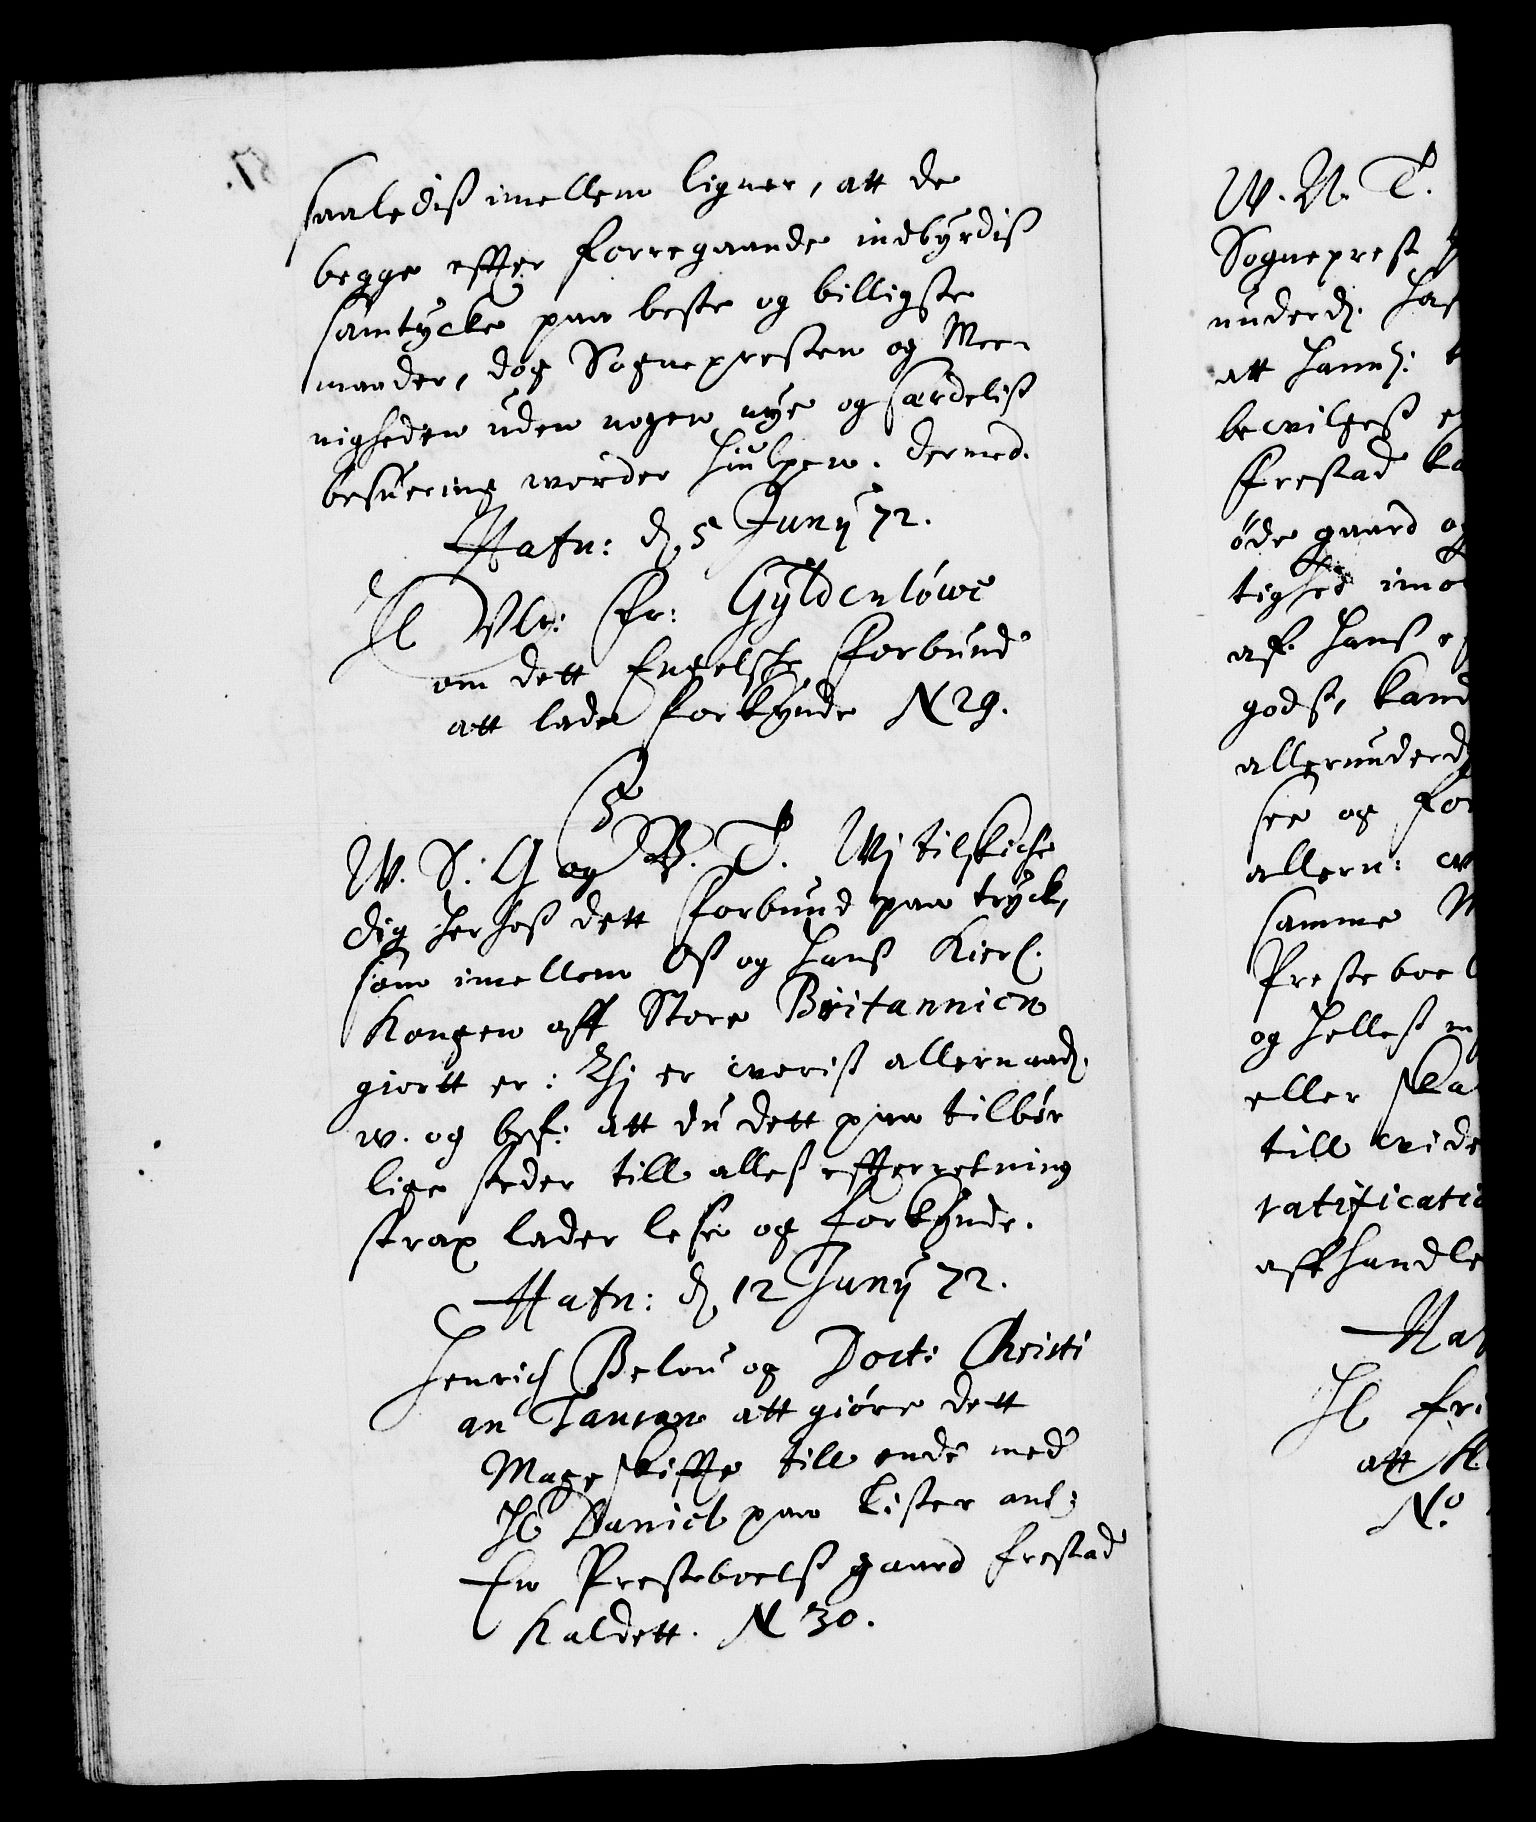 saalediß imellem ligner, att de
begge effter forregaande indbyrdiß
samtycke paa beste og billigste
maader, dog Sognepresten og Mee-
nigheden uden nogen nye og særdeliß
besuering worder hiulpen. dermed.
Hafn: d. 5 Junij 72.
H Ulr: Fr: Gyldenløwe
om dett Engelsche Forbund
att lade forkynde N 29.
C5
W. S: G og W. T. Wj tilskicke
dig herhoß dett Forbund paa tryck,
som imellem Oß og Hanß Kierl.
Kongen aff Store Britannien
giortt er: Thj er woriß allernaad.
w. og bef: att du dett paa tilbør
lige steder till alleß effterretning
strax lader lese og forkynde.
Hafn: d. 12 Junij 72.
Henrich Below og Doct: Christi
an Tausan att giøre dett
Mageskiffte till ende med
Hr Daniel paa Lister anl:
En Presteboelß gaard Frestad
Kaldett. N 30.
W. N. T.
Sogneprest
underd. haf
att hannß:
bewilgeß
Frestad ka
øde gaard og
tighed imo
af hanß e
godß, kand
allerunderd
see og for
allern: w
samme M
Presteboel
og helleß
eller ska
till wide
ratificatio
affhandle
Haf
H Fri
att H.
No.